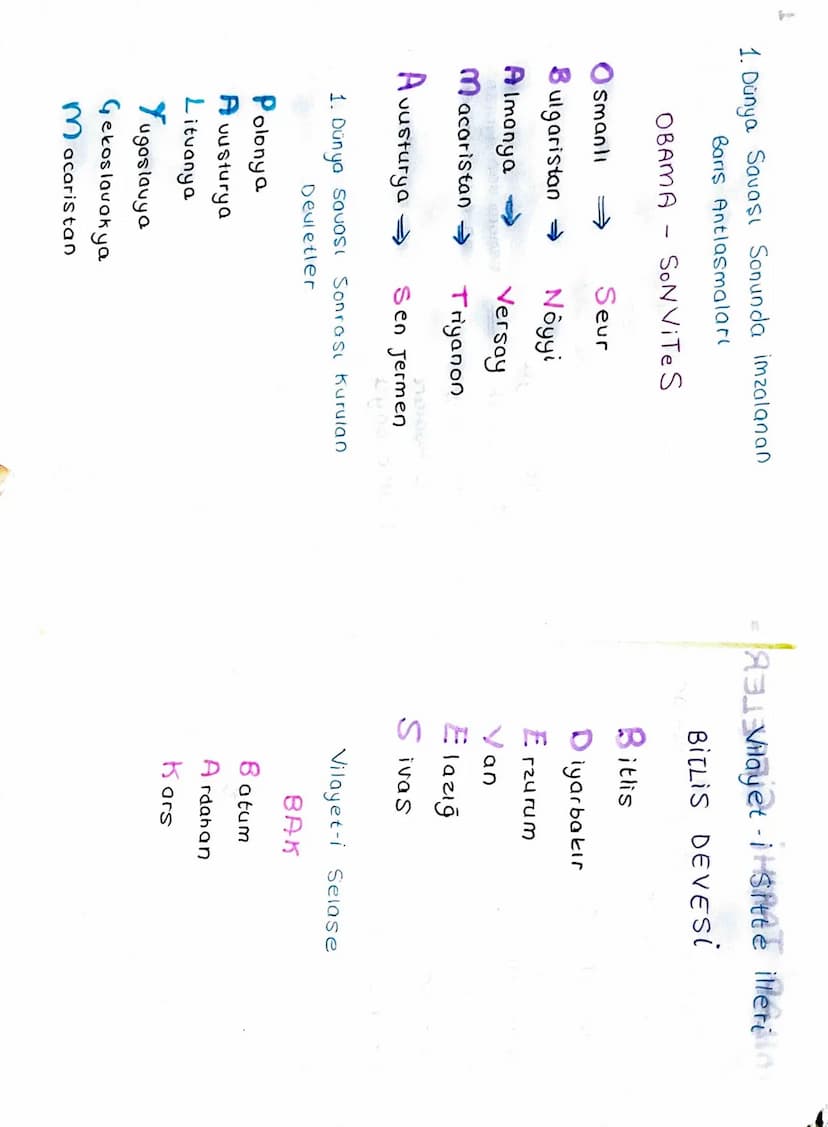 1
1. Dünya Savası Sonunda imzalanan
Barıs Antlasmaları
OBAMA - SoNViTeS
Osmanlı ⇒ Sevr
Bulgaristan → Nöyyi
Almanya → Versay
Macaristan → Triyanon
Avusturya → Sen Jermen
1. Dünya Savası Sonrası Kurulan
Devletler
Polonya
Avusturya
Litvanya
Yugoslavya
Çekoslavakya
Macaristan
Vilayet-i Sitte illeri
BİTLİS DEVESİ
Bitlis
Diyarbakır
Erzurum
Van
Elazığ
Sivas
Vilayet-i Selase
BAK
Batum
Ardahan
Kars